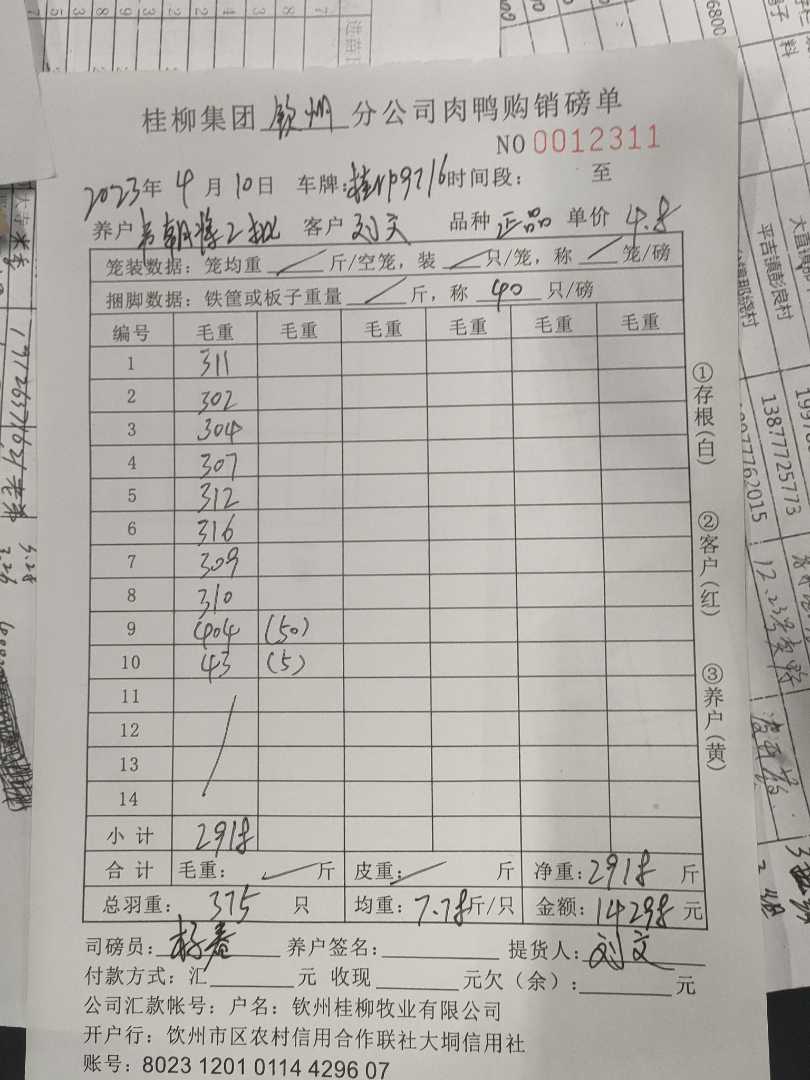 桂柳集团 钦州 分公司肉鸭购销磅单
NO 0012311
2023年 4 月 10日 车牌:桂NP9716 时间段: 至
养户 客户 刘文 品种 正品 单价 4.8
笼装数据:笼均重 斤/空笼,装 只/笼,称 笼/磅
捆脚数据:铁筐或板子重量 斤,称 40 只/磅
编号 毛重 毛重 毛重 毛重 毛重 毛重
1 311
2 302
3 304
4 307
5 312
6 316
7 309
8 310
9 404 (50)
10 43 (5)
11
12
13
14
小计 2918
合计 毛重: 斤 皮重: 斤 净重:2918 斤
总羽重: 375 只 均重:7.78斤/只 金额:14298元
司磅员:杨春 养户签名: 提货人:刘文
付款方式:汇 元 收现 元欠(余): 元
公司汇款帐号:户名:钦州桂柳牧业有限公司
开户行:饮州市区农村信用合作联社大垌信用社
账号:8023 1201 0114 4296 07
①存根(白)
②客户(红)
③养户(黄)
6800
平吉镇彭良村
13877725773
3.28
3.26